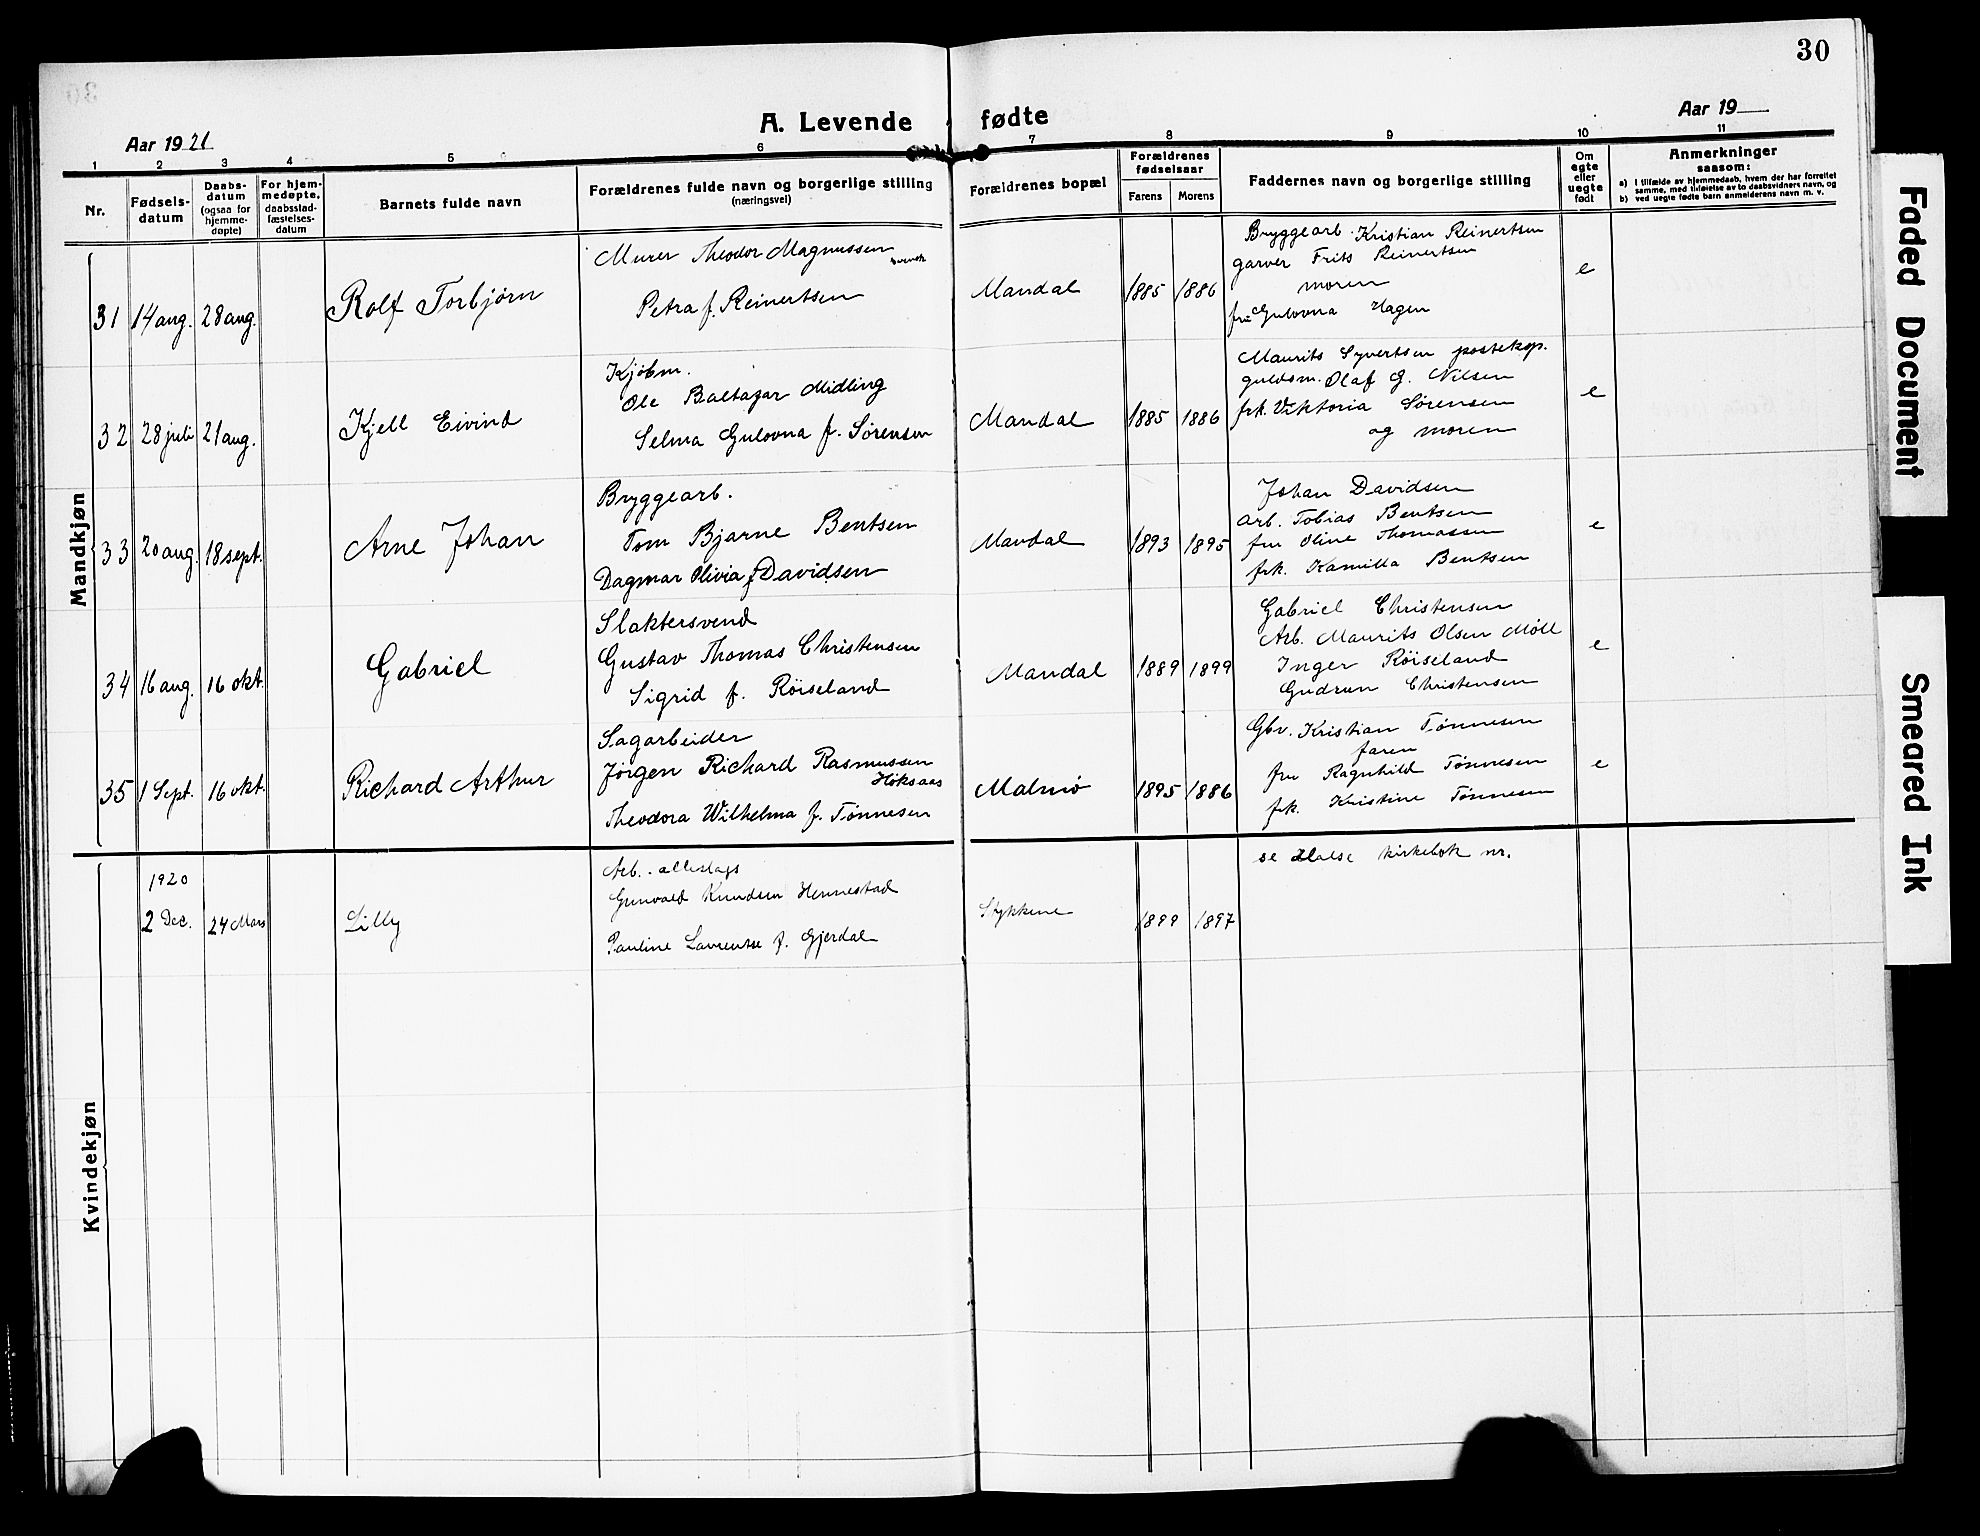 30
A. Levende fødte
Aar 1921
Aar 19
1 2 3 4 5 6 7 8 9 10 11
Nr.
Fødsels-
datum
Daabs-
datum
(ogsaa for
hjemme-
døpte)
For hjem-
medøpte,
daabsstad-
fæstelses-
datum
Barnets fulde navn
Forældrenes fulde navn og borgerlige stilling
(næringsvei)
Forældrenes bopæl
Forældrenes
fødselsaar
Farens Morens
Faddernes navn og borgerlige stilling
Om
egte
eller
uegte
født
Anmerkninger
saasom:
a) I tilfælde av hjemmedaab, hvem der har forrettet
samme, med tilføielse av to daabsvidners navn, og
b) ved uegte fødte barn anmelderens navn m. v.
Mandkjøn
31 14 aug. 28 aug. Rolf Torbjørn
Murer Theodor Magnussen
Petra f. Reinertsen
Mandal 1885 1886
Bryggearb. Kristian Reinertsen
garver Frits Reinertsen
moren
fru Gulovna Hagen
e
32 28 juli 21 aug. Kjell Eivind
Kjøbm.
Ole Baltazar Midling
Selma Gulovna f. Sørensen
Mandal 1885 1886
Maurits Syvertsen posteksp.
guldsm. Olaf G. Nilsen
frk. Viktoria Sørensen
og moren
e
33 20 aug. 18 sept. Arne Johan
Bryggearb.
Tom Bjarne Bentsen
Dagmar Olivia f. Davidsen
Mandal 1893 1895
Johan Davidsen
arb. Tobias Bentsen
fru Oline Thomassen
frk. Kamilla Bentsen
e
34 16 aug. 16 okt. Gabriel
Slaktersvend
Gustav Thomas Christensen
Sigrid f. Røiseland
Mandal 1889 1899
Gabriel Christensen
Arb. Maurits Olsen Møll
Inger Røiseland
Gudrun Christensen
e
35 1 Sept. 16 okt. Richard Arthur
Sagarbeider
Jørgen Richard Rasmussen
Høksaas
Theodora Wilhelma f. Tønnesen
Malmø 1895 1886
Gbr. Kristian Tønnesen
faren
fru Ragnhild Tønnesen
frk. Kristine Tønnesen
e
Kvindekjøn
1920
2 Dec. 24 Mars Lilly
Arb. alleslags
Gunvald Knudsen Hennestad
Pauline Laurentse f. Gjerdal
Stykkene 1899 1897
se Halse kirkebok nr.
Faded Document
Smeared Ink